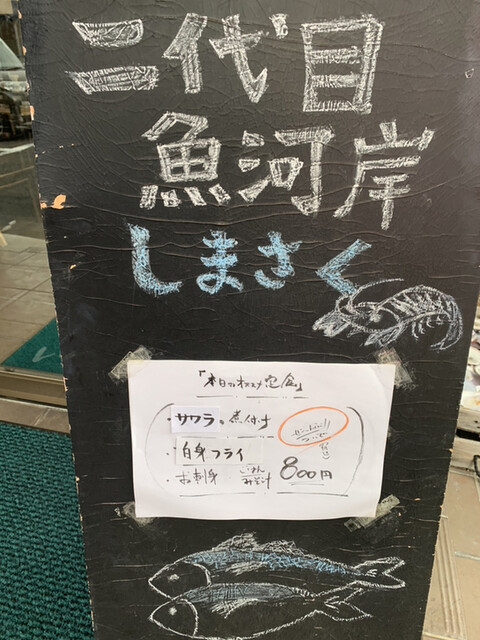 二代目
魚河岸
しまさく
「本日のオススメ定食」
・サワラの煮付け
・白身フライ
・お刺身
ごはん
みそ汁
800円